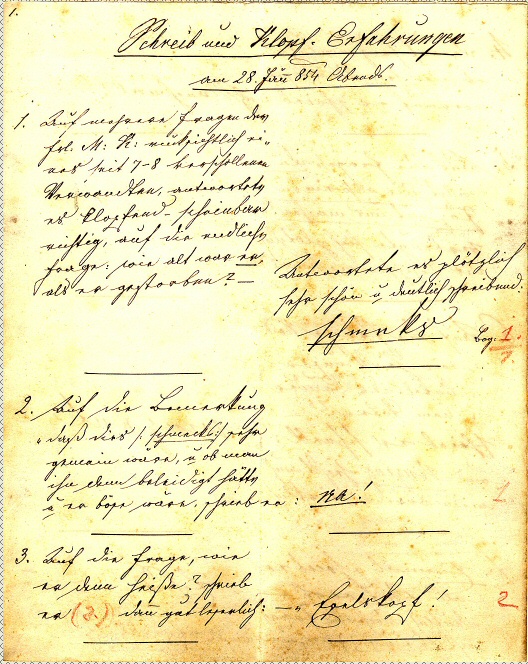 1.
Schreib und Klopf-Erfahrungen
am 28. Jän 854 Abends.
1. Auf mehrere Fragen der
Frl. M: K: rücksichtlich ei-
nes seit 7-8 verschollenen
Verwandten, antwortete
es klopfend scheinbar
richtig, auf die endliche
Frage: wie alt war er,
als er gestorben? —
Antwortete es plötzlich
sehr schön u deutlich schreibend:
schmeks
Bog: 1.
2. Auf die Bemerkung
„daß dies /: schmecks :/ sehr
gemein wäre, u ob man
ihn denn beleidigt hätte
u er böse wäre, schrieb er: na!
1
3. Auf die Frage, wie
er denn heiße? schrieb
er (2.) dan gut leserlich: — „Eselskopf!
2